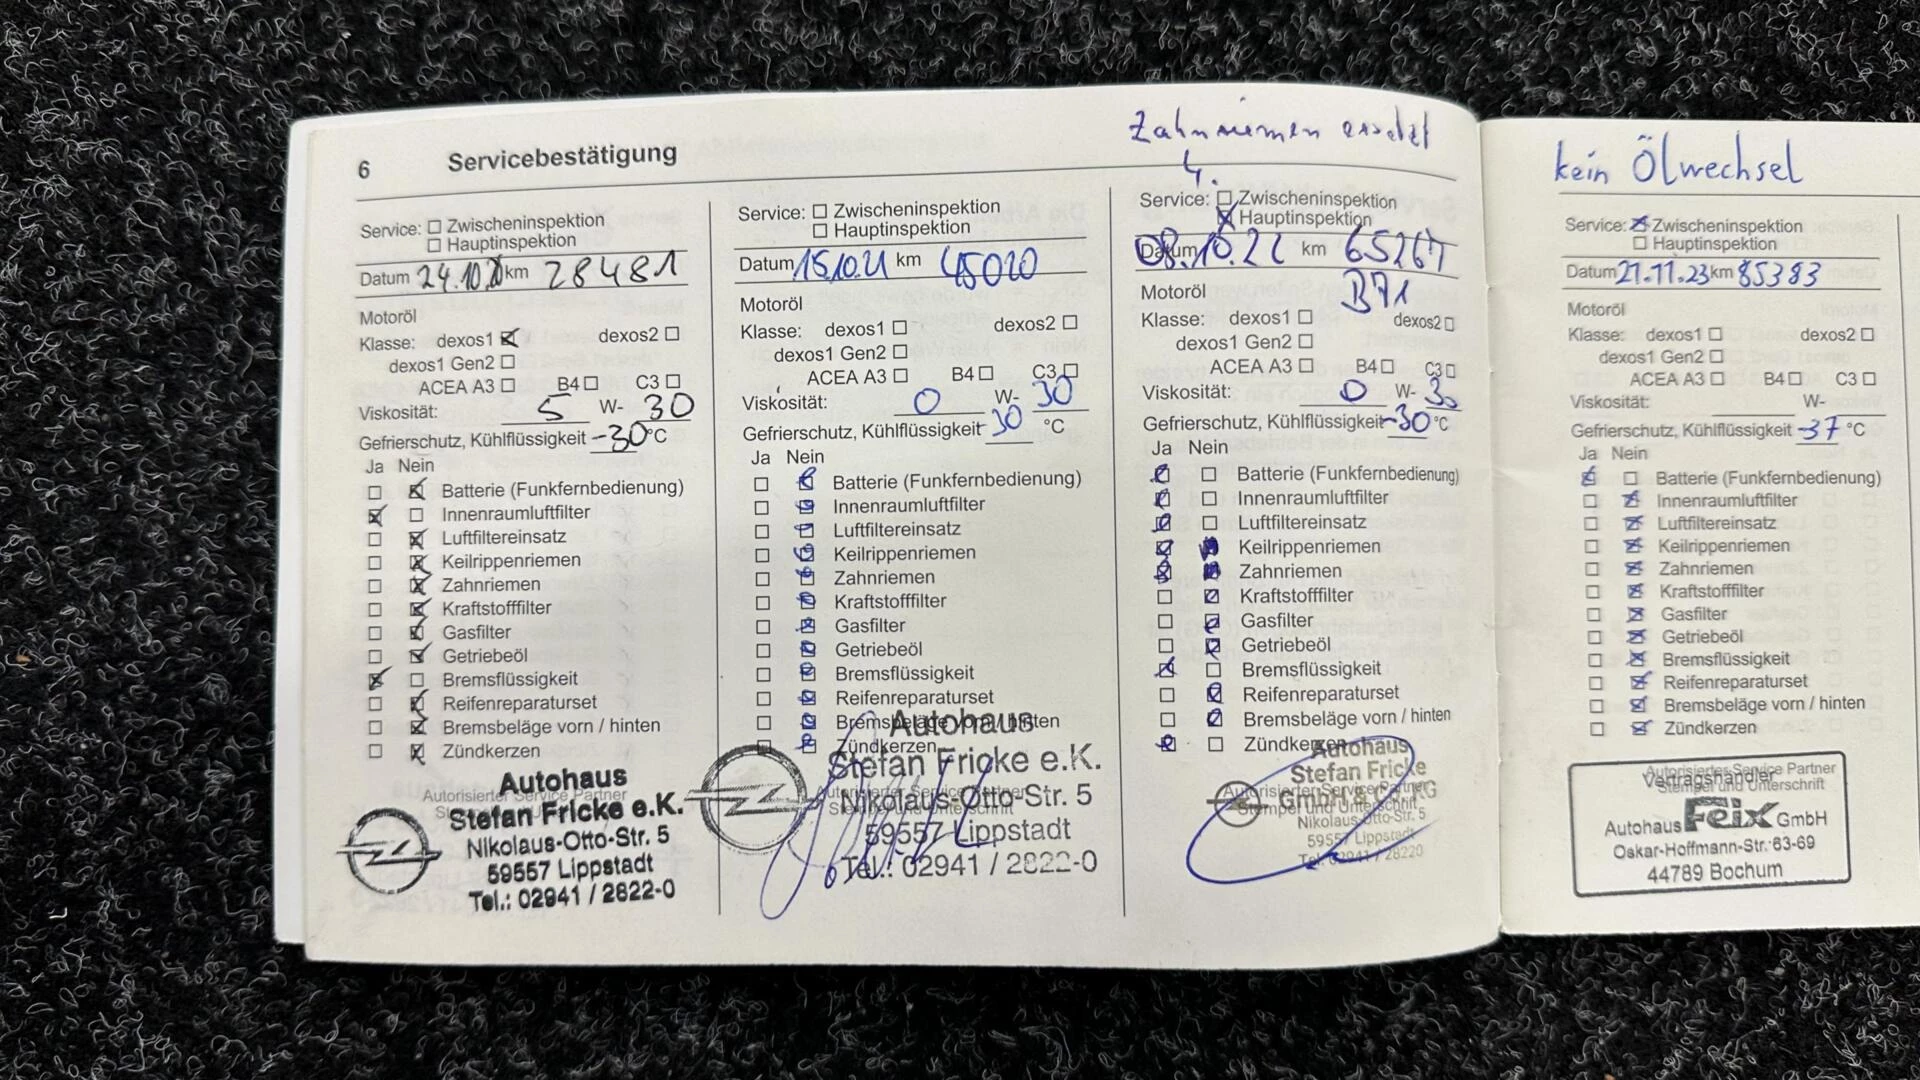 6 Servicebestätigung
Service: Zwischeninspektion
Hauptinspektion
Datum 24.10.20 km 28481
Motoröl
Klasse: dexos1 dexos2
dexos1 Gen2
ACEA A3 B4 C3
Viskosität: 5 W- 30
Gefrierschutz, Kühlflüssigkeit -30 °C
Ja Nein
Batterie (Funkfernbedienung)
Innenraumluftfilter
Luftfiltereinsatz
Keilrippenriemen
Zahnriemen
Kraftstofffilter
Gasfilter
Getriebeöl
Bremsflüssigkeit
Reifenreparaturset
Bremsbeläge vorn / hinten
Zündkerzen
Autorisierter Service Partner
Autohaus
Stefan Fricke e.K.
Nikolaus-Otto-Str. 5
59557 Lippstadt
Tel.: 02941 / 2822-0
Service: Zwischeninspektion
Hauptinspektion
Datum 15.10.21 km 45020
Motoröl
Klasse: dexos1 dexos2
dexos1 Gen2
ACEA A3 B4 C3
Viskosität: 0 W- 30
Gefrierschutz, Kühlflüssigkeit 30 °C
Ja Nein
Batterie (Funkfernbedienung)
Innenraumluftfilter
Luftfiltereinsatz
Keilrippenriemen
Zahnriemen
Kraftstofffilter
Gasfilter
Getriebeöl
Bremsflüssigkeit
Reifenreparaturset
Bremsbeläge vorn / hinten
Zündkerzen
Autohaus
Stefan Fricke e.K.
Nikolaus-Otto-Str. 5
59557 Lippstadt
Tel.: 02941 / 2822-0
Zahnriemen ersetzt
4.
Service: Zwischeninspektion
Hauptinspektion
Datum 08.10.22 km 65267
B71
Motoröl
Klasse: dexos1 dexos2
dexos1 Gen2
ACEA A3 B4 C3
Viskosität: 0 W- 30
Gefrierschutz, Kühlflüssigkeit -30 °C
Ja Nein
Batterie (Funkfernbedienung)
Innenraumluftfilter
Luftfiltereinsatz
Keilrippenriemen
Zahnriemen
Kraftstofffilter
Gasfilter
Getriebeöl
Bremsflüssigkeit
Reifenreparaturset
Bremsbeläge vorn / hinten
Zündkerzen
Autorisierter Service Partner
Stempel und Unterschrift
Autohaus
Stefan Fricke
GmbH & Co. KG
Nikolaus-Otto-Str. 5
59557 Lippstadt
Tel. 02941 / 28220
kein Ölwechsel
Service: Zwischeninspektion
Hauptinspektion
Datum 21.11.23 km 85383
Motoröl
Klasse: dexos1 dexos2
dexos1 Gen2
ACEA A3 B4 C3
Viskosität: W-
Gefrierschutz, Kühlflüssigkeit -37 °C
Ja Nein
Batterie (Funkfernbedienung)
Innenraumluftfilter
Luftfiltereinsatz
Keilrippenriemen
Zahnriemen
Kraftstofffilter
Gasfilter
Getriebeöl
Bremsflüssigkeit
Reifenreparaturset
Bremsbeläge vorn / hinten
Zündkerzen
Autorisierter Service Partner
Stempel und Unterschrift
Vertragshändler
Autohaus Feix GmbH
Oskar-Hoffmann-Str. 63-69
44789 Bochum